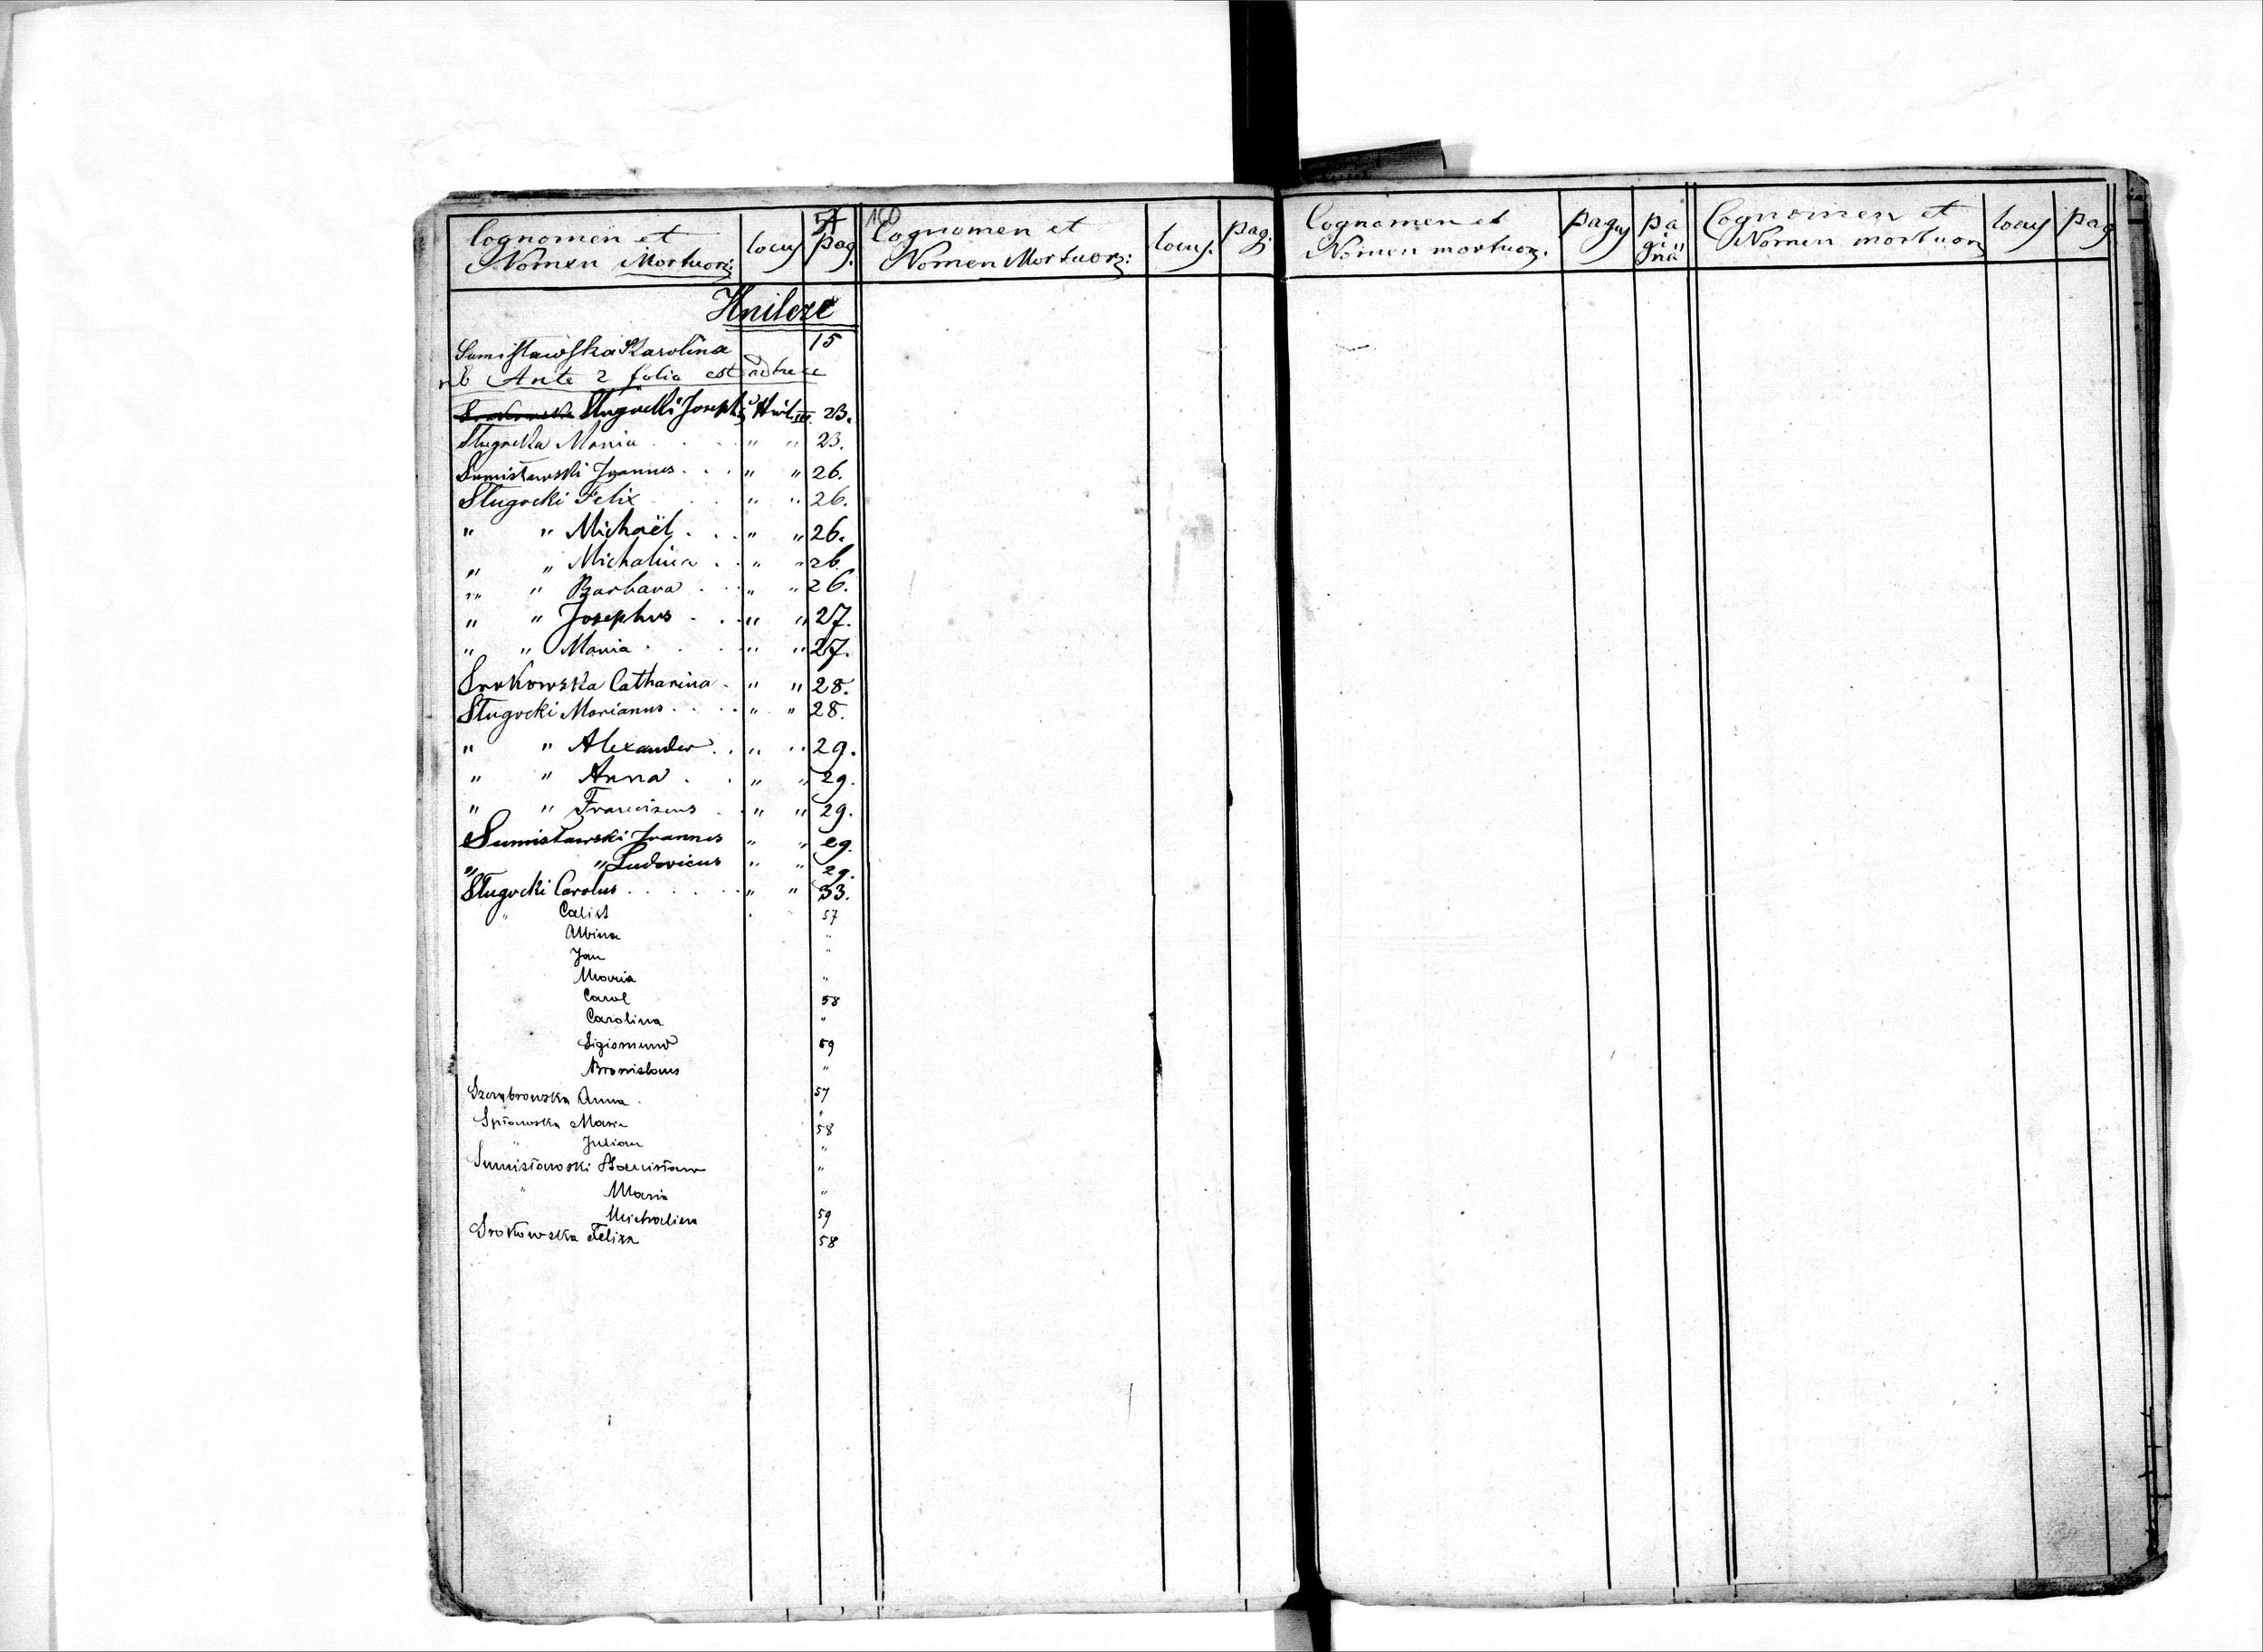 57 160
Cognomen et Nomen Mortuor: locus pag.
Cognomen et Nomen Mortuor: locus. pag.
Cognomen et Nomen mortuor. pagus pagina
Cognomen et Nomen mortuor locus pag
Hnilcze
Sumisławska Karolina 15
nb Ante 2 folia est adhuc
Sługocki Josephus Hnil. III. 23.
Sługocka Maria . . . " " 23.
Sumisławski Joannes . . . " " 26.
Sługocki Felix . . " " 26.
" " Michaël . . . " " 26.
" " Michalina . . " " 26
" " Barbara . . . " " 26.
" " Josephus . . . " " 27.
" " Maria . . . " " 27.
Srokowska Catharina . " " 28.
Sługocki Marianus . . . . " " 28.
" " Alexander . . " " 29.
" " Anna . . " " 29.
" " Franciscus . . " " 29.
Sumisławski Joannes " " 29.
" " Ludovicus " " 29.
Sługocki Carolus . . . . . . " " 33.
" Calist 57
Albina "
Jan "
Maria "
Carol 58
Carolina "
Sigismund 59
Bronislaus "
Anna 57
Maria 58
" Julian "
Sumisławski Stanisław "
" Maria "
Michalina 59
Srokowska Felixa 58